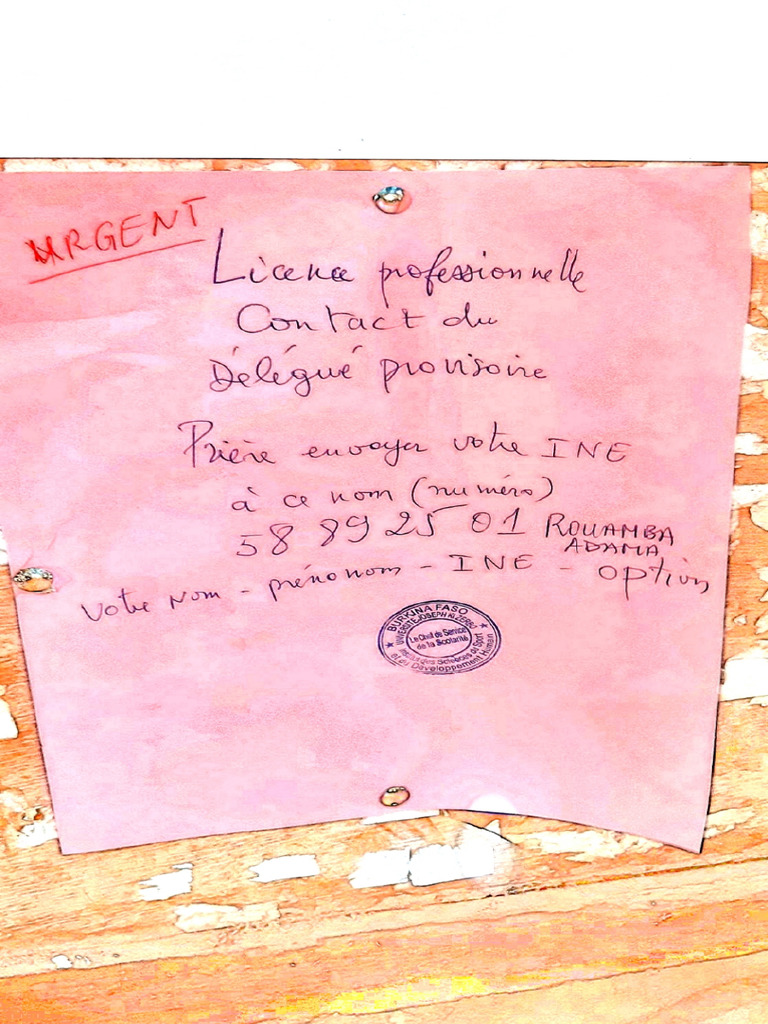 URGENT
Licence professionnelle
Contact du
Délégué provisoire
Prière envoyer votre INE
à ce nom (numéro)
58 89 25 01 ROUAMBA
ADAMA
Votre Nom - prénonom - INE - option
BURKINA FASO
UNIVERSITE JOSEPH KI-ZERBO
Le Chef de Service
de la Scolarité
Institut des Sciences du Sport
et du Développement Humain